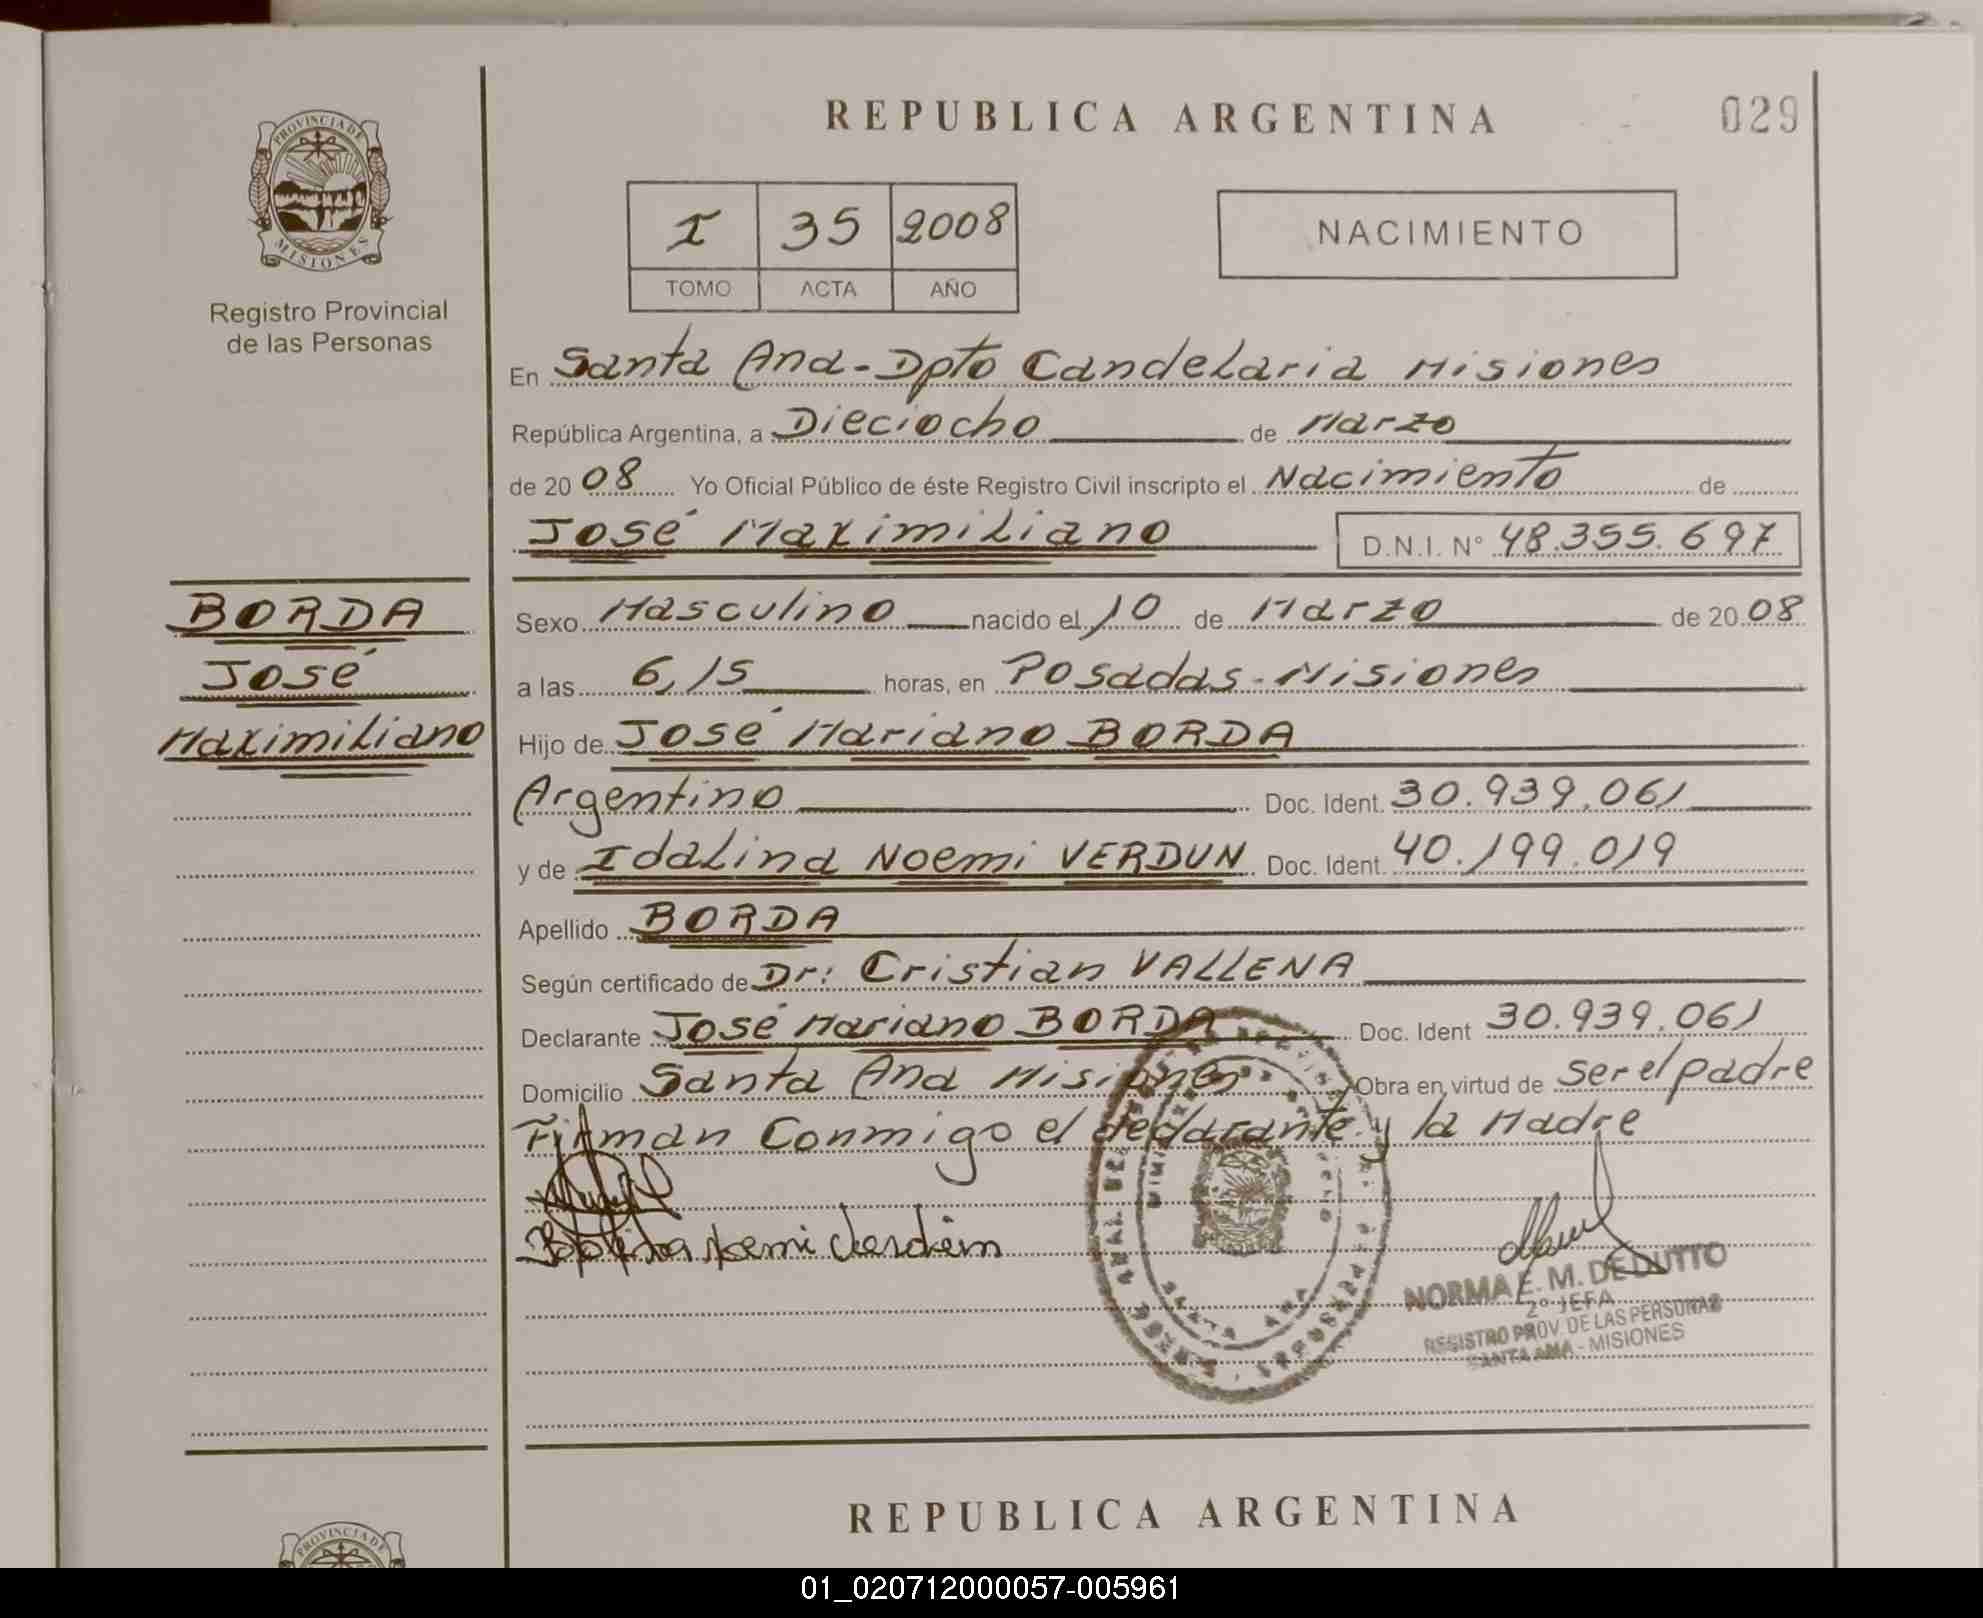 REPUBLICA ARGENTINA
029
PROVINCIA DE
MISIONES
Registro Provincial
de las Personas
I 35 2008
TOMO ACTA AÑO
NACIMIENTO
En Santa Ana-Dpto Candelaria Misiones
República Argentina, a Dieciocho de Marzo
de 20 08 Yo Oficial Público de éste Registro Civil inscripto el Nacimiento de
José Maximiliano D.N.I. N° 48.355.697
BORDA
José
Maximiliano
Sexo Masculino nacido el 10 de Marzo de 20 08
a las 6,15 horas, en Posadas-Misiones
Hijo de José Mariano BORDA
Argentino Doc. Ident. 30.939.061
y de Idalina Noemi VERDUN Doc. Ident. 40.199.019
Apellido BORDA
Según certificado de Dr: Cristian VALLENA
Declarante José Mariano BORDA Doc. Ident 30.939.061
Domicilio Santa Ana Misiones Obra en virtud de ser el padre
Firman Conmigo el declarante y la Madre
SANTA ANA
NORMA E. M. DE DUTTO
2° JEFA
REGISTRO PROV. DE LAS PERSONAS
SANTA ANA - MISIONES
REPUBLICA ARGENTINA
PROVINCIA DE
01_020712000057-005961